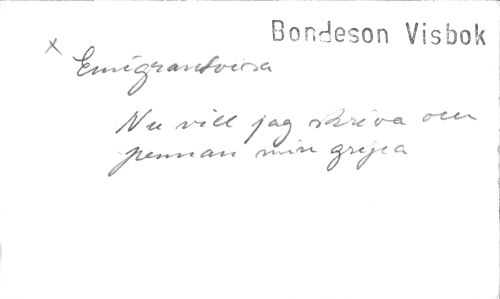 Bondeson Visbok
x Emigrantvisa
Nu vill jag skriva och
pennan min gripa